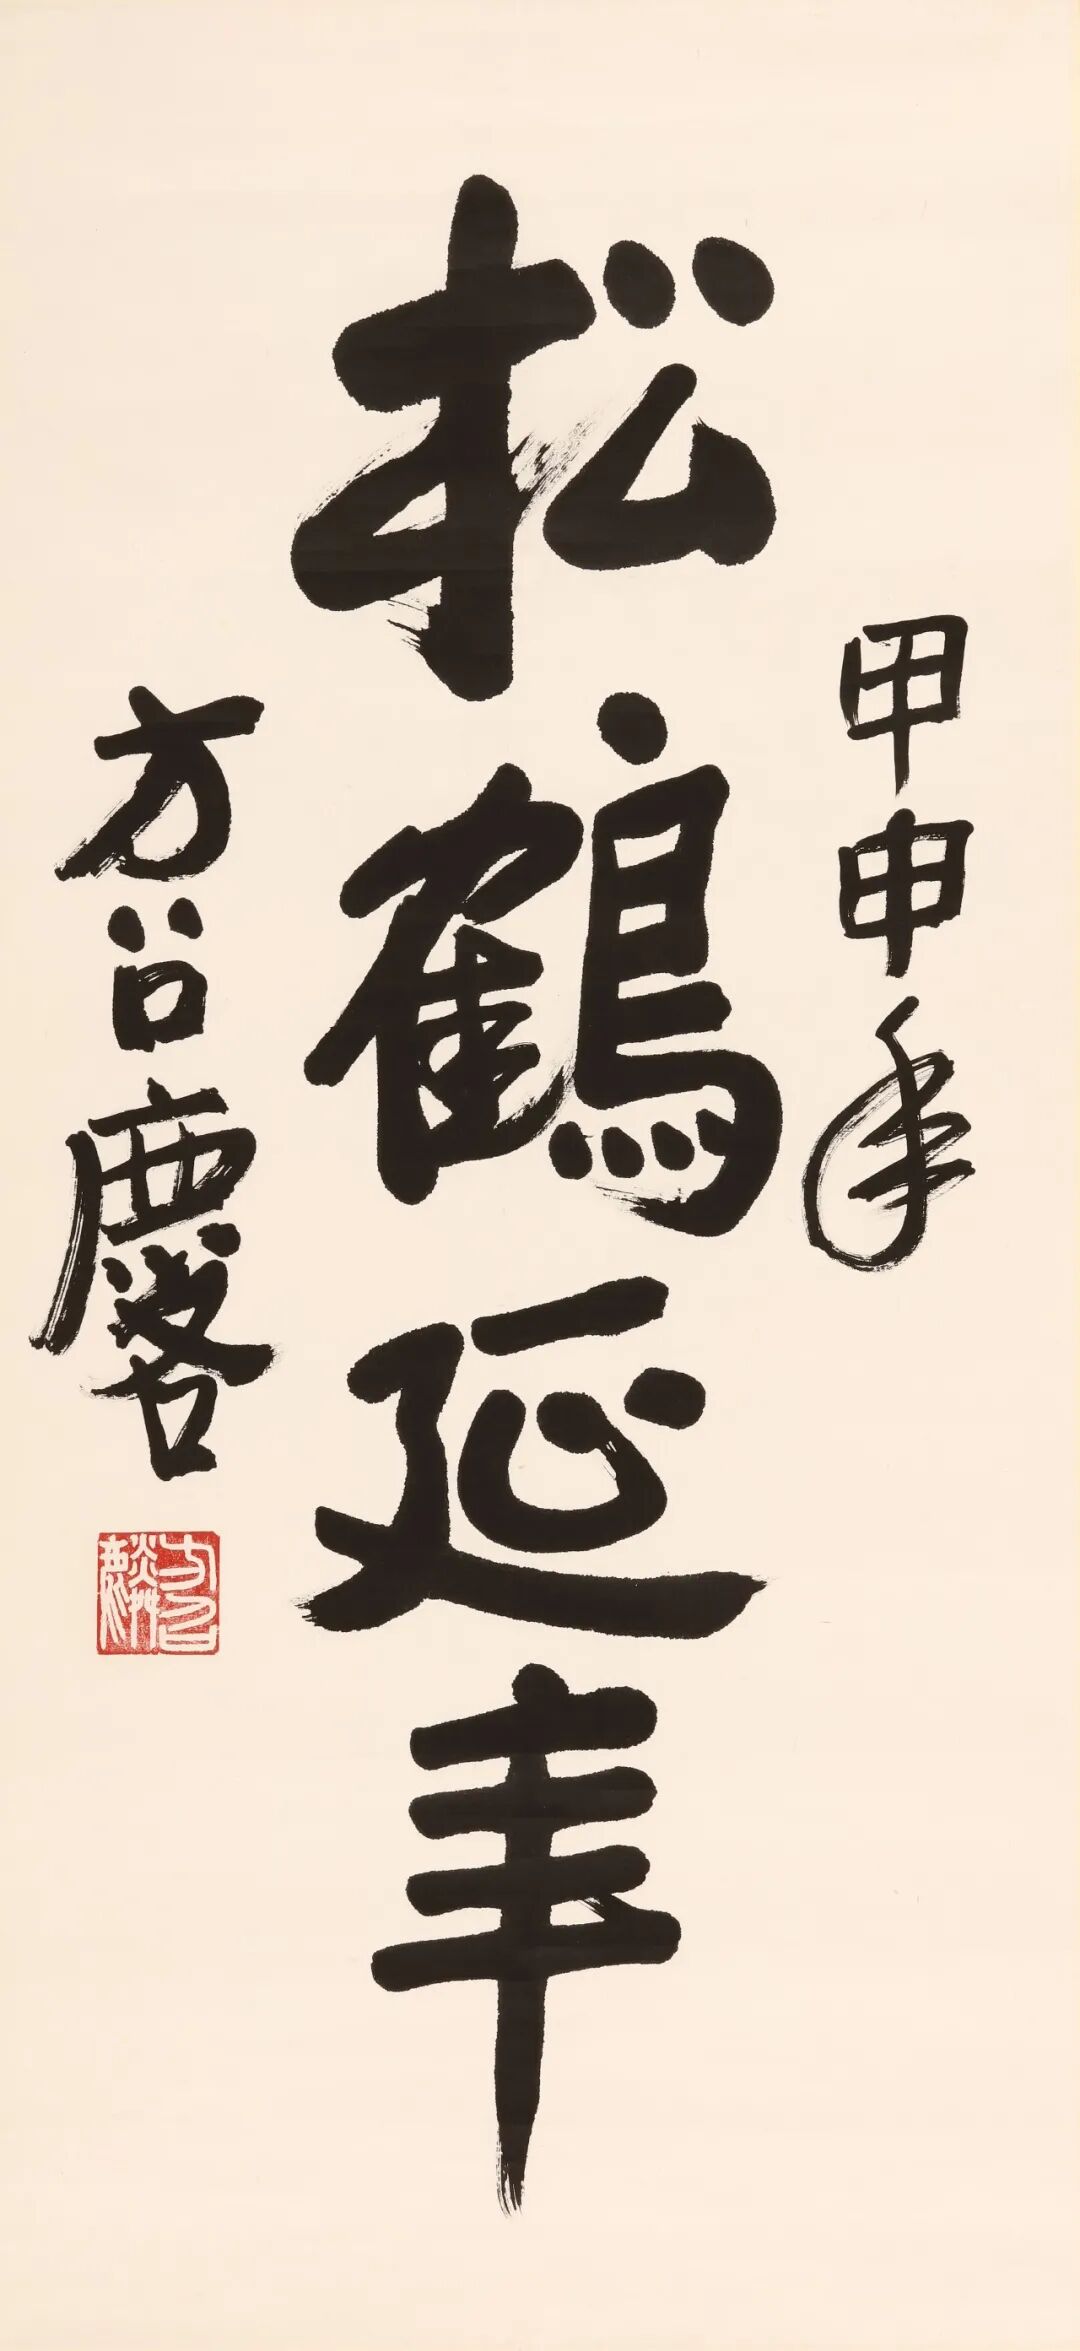 甲申年
松鶴延年
方召麐
方召麟